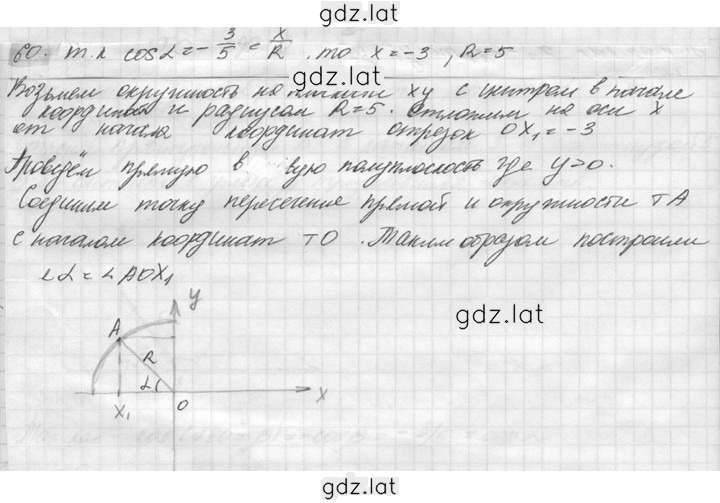 gdz.lat
60. т.к cos α = - 3/5 = x/R . то x = -3 , R = 5
gdz.lat
Возьмем окружность на xy с центром в начале
координат и радиусом R = 5. Отложим на оси x
от начала координат отрезок OX₁ = -3
Проведём прямую в вую полуплоскость где y > 0.
Соединим точку пересечение прямой и окружности т A
с началом координат т O . Таким образом построили
∠α = ∠AOX₁
gdz.lat
y
A
R
α
X₁
O
x
gdz.lat